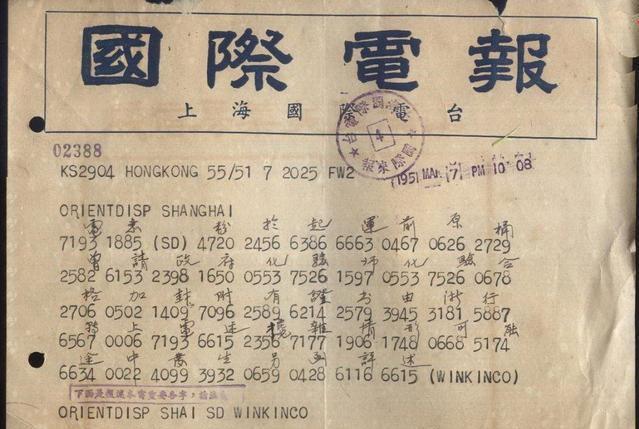 國際電報
上海國際電台
4
02388
KS2904 HONGKONG 55/51 7 2025 FW2
1951 MAR (7) PM 10 08
ORIENTDISP SHANGHAI
電悉 粉於起運前原桶
7193 1885 (SD) 4720 2456 6386 6663 0467 0626 2729
曾請政府化驗師化驗合
2582 6153 2398 1650 0553 7526 1597 0553 7526 0678
格加封附有證书由浙行
2706 0502 1409 7096 2589 6214 2579 3945 3181 5887
上電述 雜情形可融
6567 0006 7193 6615 2356 7177 1906 1748 0668 5174
途中發生另函詳述
6634 0022 4099 3932 0659 0428 6116 6615 (WINKINCO)
下面是複述本電重要各字，請
ORIENTDISP SHAI SD WINKINCO